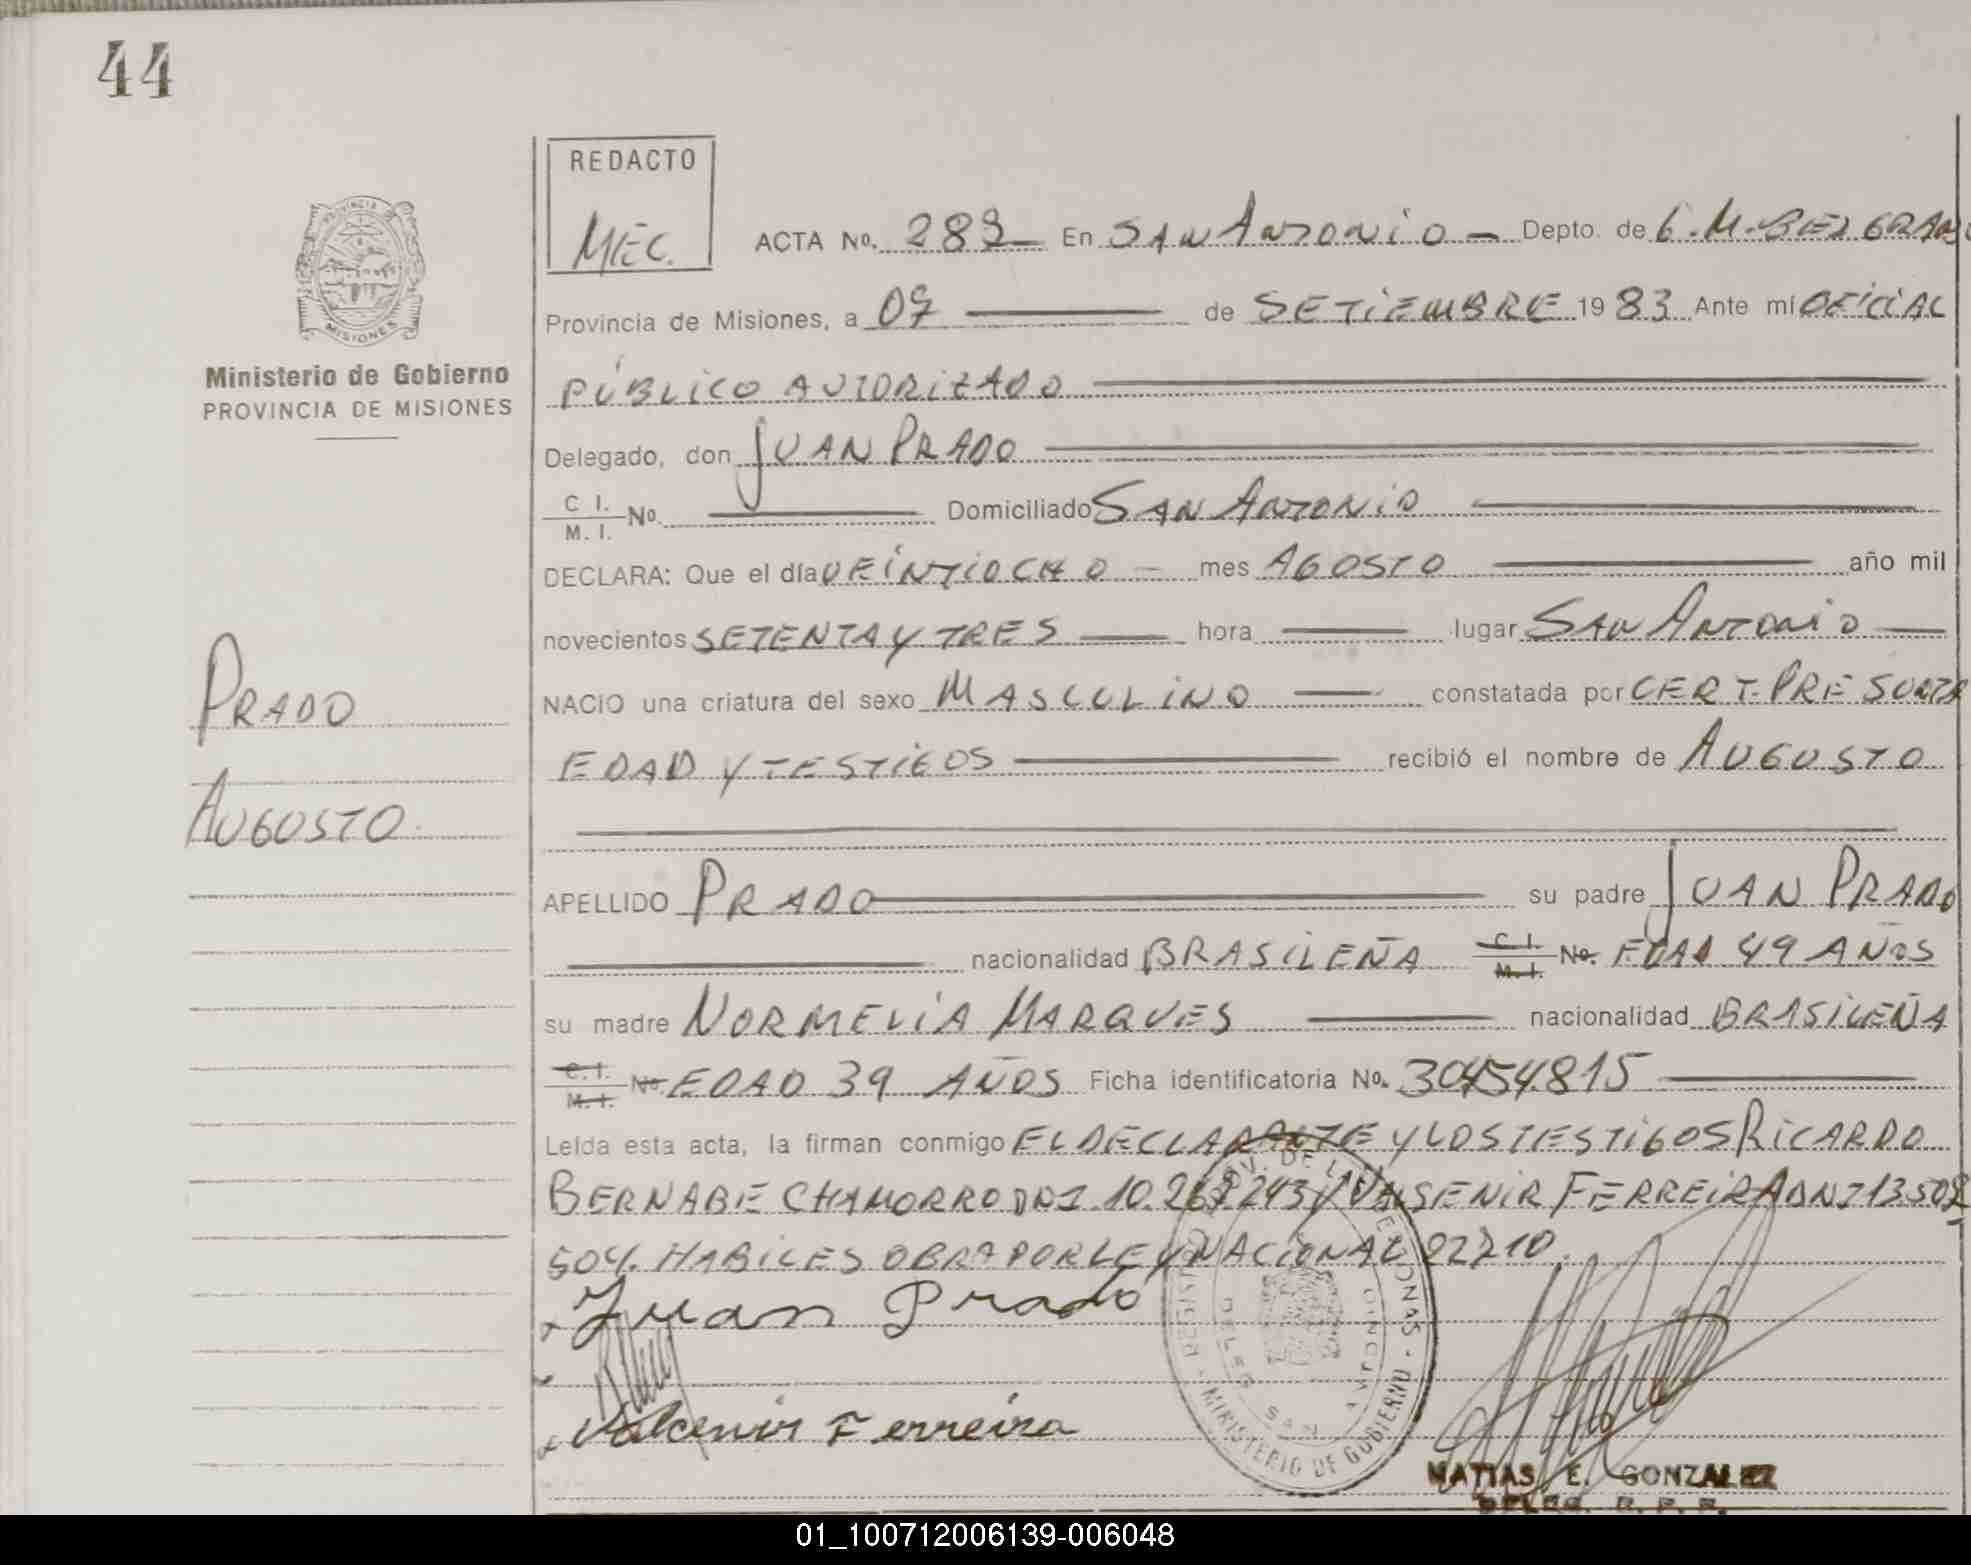 44
REDACTO
MEC.
ACTA No. 289 En SAN ANTONIO - Depto. de G. M. BELGRANO
Provincia de Misiones, a 07 de SETIEMBRE 1983 Ante mí OFICIAL
PÚBLICO AUTORIZADO
Delegado, don JUAN PRADO
C I. / M. I. No. Domiciliado SAN ANTONIO
DECLARA: Que el día VEINTIOCHO - mes AGOSTO año mil
novecientos SETENTA Y TRES hora lugar SAN ANTONIO
NACIO una criatura del sexo MASCULINO constatada por CERT. PRESUNTA
EDAD Y TESTIGOS recibió el nombre de AUGUSTO
APELLIDO PRADO su padre JUAN PRADO
nacionalidad BRASILEÑA C. I. / M. I. No. EDAD 49 AÑOS
su madre NORMELIA MARQUES nacionalidad BRASILEÑA
C. I. / M. I. No. EDAD 39 AÑOS Ficha identificatoria No. 30454815
Leída esta acta, la firman conmigo EL DECLARANTE Y LOS TESTIGOS RICARDO
BERNABE CHAMORRO DNI 10.269.243 Y VALSENIR FERREIRA DNI 13.502
504. HABILES OBRA POR LEY NACIONAL 22210.
Juan Prado
Valcenir Ferreira
PROVINCIA DE
MISIONES
Ministerio de Gobierno
PROVINCIA DE MISIONES
PRADO
AUGUSTO
REGISTRO PROV. DE LAS PERSONAS - MINISTERIO DE GOBIERNO -
DELEG. SAN ANTONIO
MATIAS E. GONZALEZ
DELEG. R. P. P.
01_100712006139-006048